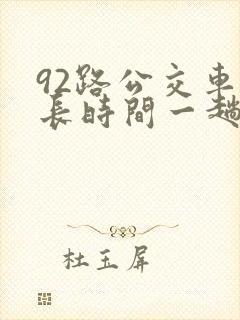 92路公交車
長時間一趟
杜玉屏